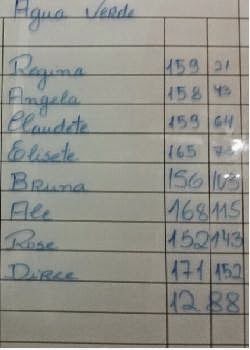 Agua Verde
Regina 159 21
Angela 158 43
Claudete 159 64
Elisete 165
Bruna 156 105
Ale 168 115
Rose 152 143
Dirce 171 152
12 88